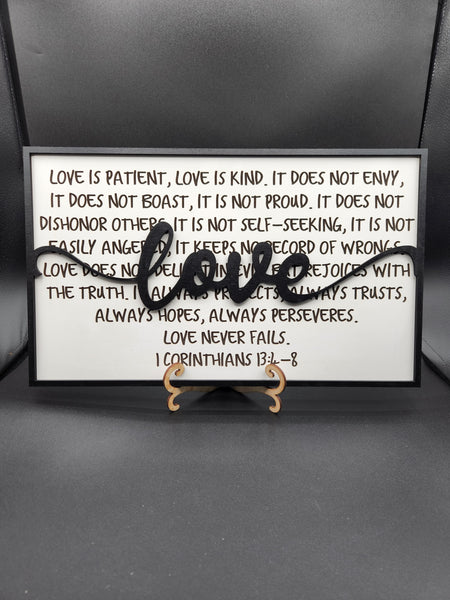 LOVE IS PATIENT, LOVE IS KIND. IT DOES NOT ENVY,
IT DOES NOT BOAST, IT IS NOT PROUD. IT DOES NOT
DISHONOR OTHERS, IT IS NOT SELF-SEEKING, IT IS NOT
EASILY ANGERED, IT KEEPS NO RECORD OF WRONGS.
LOVE DOES NOT DELIGHT IN EVIL BUT REJOICES WITH
THE TRUTH. IT ALWAYS PROTECTS, ALWAYS TRUSTS,
ALWAYS HOPES, ALWAYS PERSEVERES.
LOVE NEVER FAILS.
1 CORINTHIANS 13:4-8
love